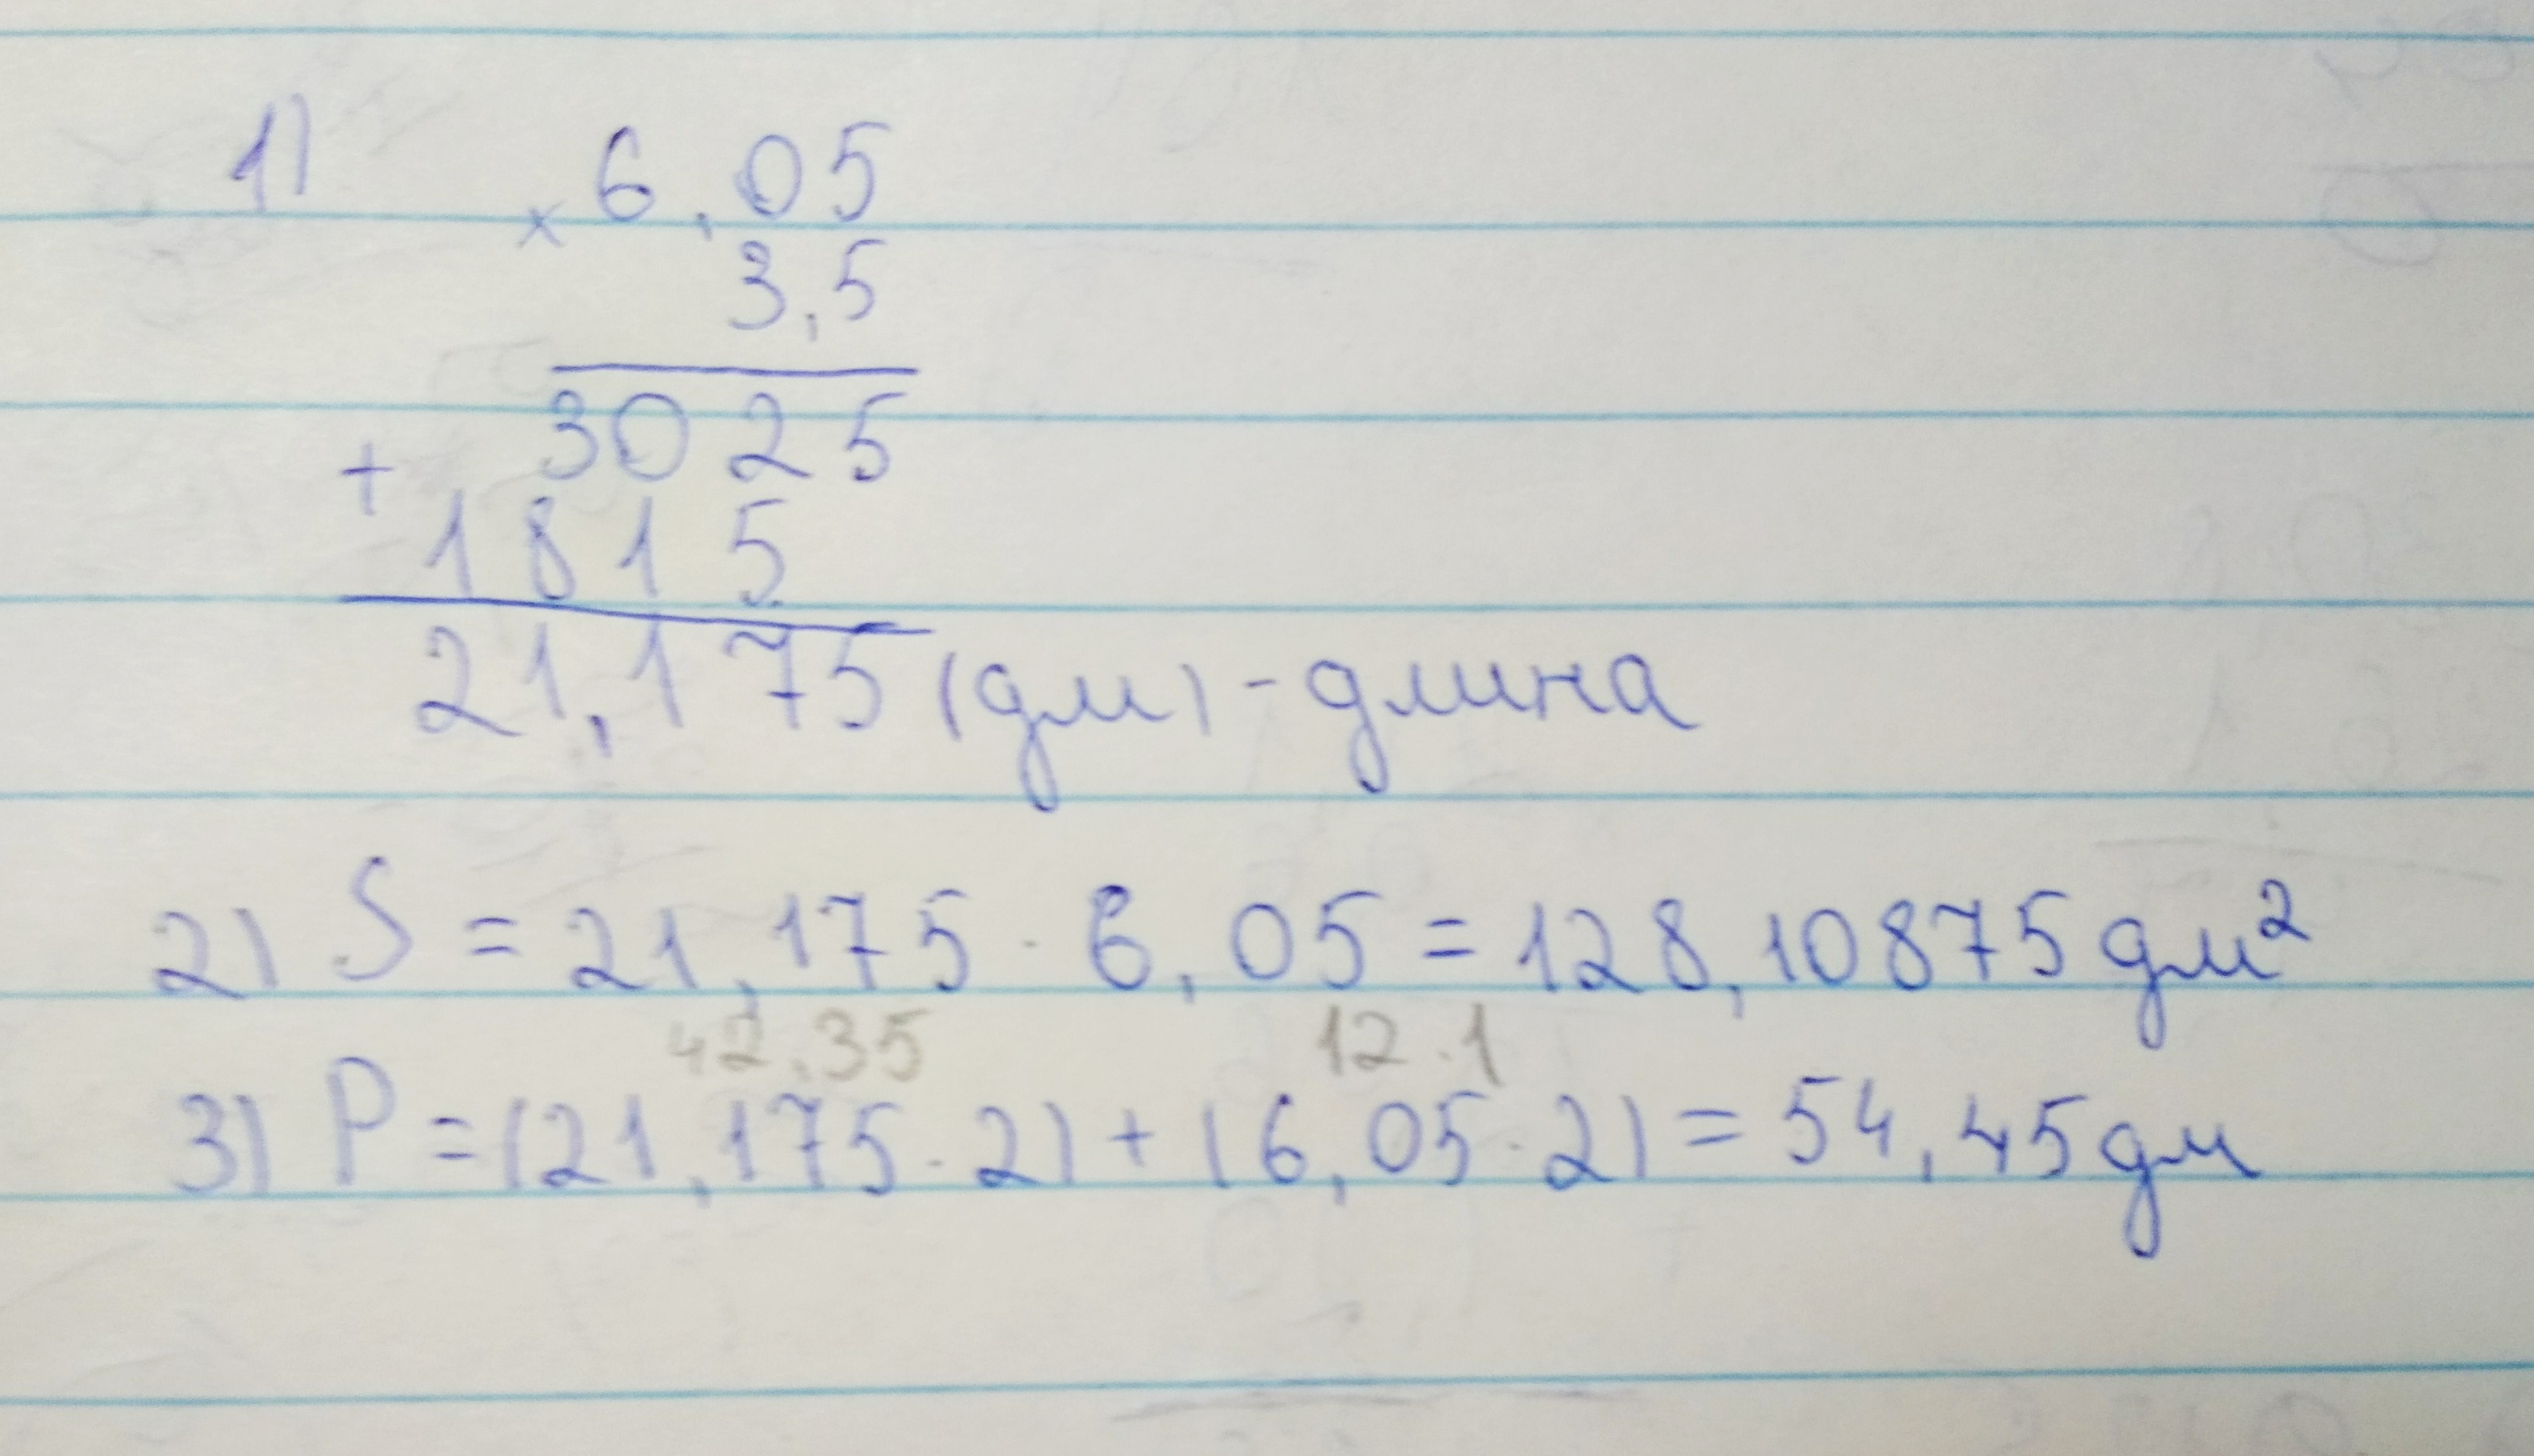 1)
× 6,05
3,5
3025
+
1815
21,175 (дм) - длина
2) S = 21,175 · 6,05 = 128,10875 дм²
42.35 12.1
3) P = (21,175 · 2) + (6,05 · 2) = 54,45 дм